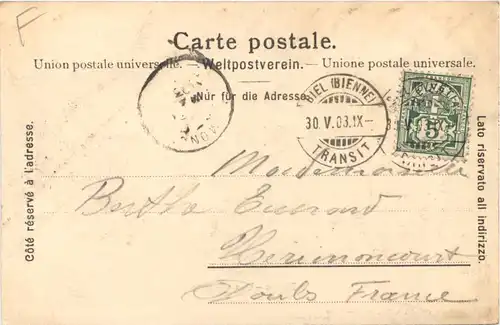 F
Carte postale.
Union postale universelle. — Weltpostverein. — Unione postale universale.
Nur für die Adresse
BIEL (BIENNE)
30.V.03.IX-
TRANSIT
5
Côté réservé à l'adresse.
Lato riservato all indirizzo.
Mademoiselle
Berthe
Hérimoncourt
Doubs France